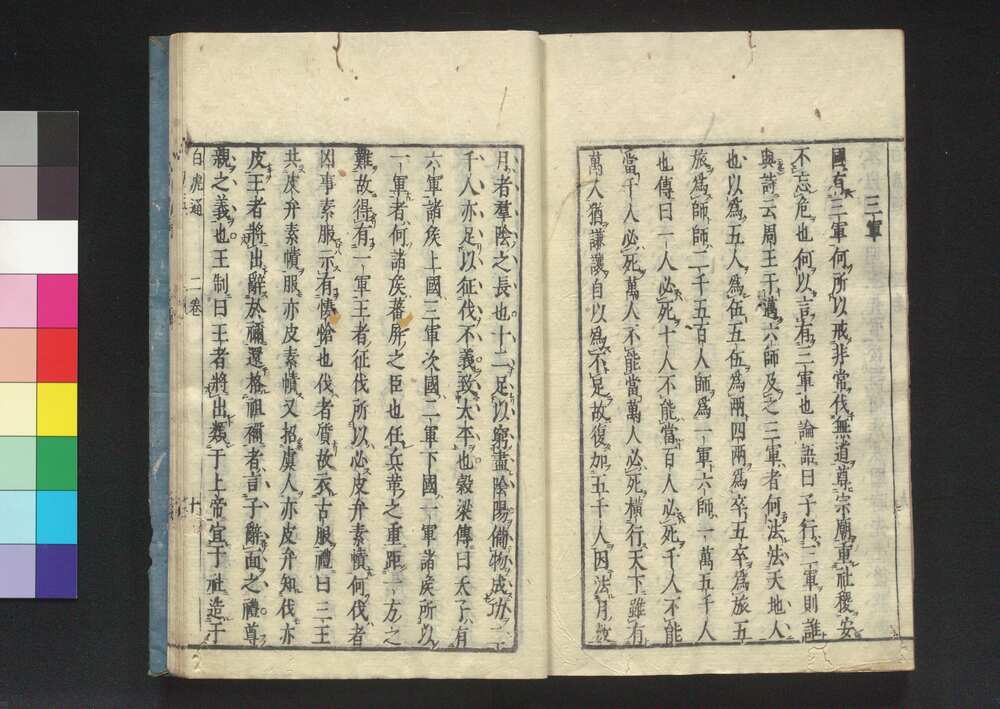 三軍
國有三軍何所以戒非常伐無道尊宗廟重社稷安
不忘危也何以言有三軍也論語曰子行三軍則誰
與詩云周王于邁六師及之三軍者何法法天地人
也以爲五人爲伍五伍爲兩四兩爲卒五卒爲旅五
旅爲師師二千五百人師爲一軍六師一萬五千人
也傳曰一人必死十人不能當百人必死千人不能
當千人必死萬人不能當萬人必死橫行天下雖有
萬人猶謙讓自以爲不足故復加五千人因法月數
月者羣陰之長也十二足以窮盡陰陽備物成功二
千人亦足以征伐不義致太平也穀梁傳曰天子有
六軍諸矦上國三軍次國二軍下國一軍諸矦所以
一軍者何諸矦蕃屏之臣也任兵革之重距一方之
難故得有一軍王者征伐所以必皮弁素幘何伐者
凶事素服示有悽愴也伐者質故衣古服禮曰三王
共皮弁素幘服亦皮素幘又招虞人亦皮弁知伐亦
皮王者將出辭於禰還格祖禰者言子辭面之禮尊
親之義也王制曰王者將出類于上帝宜于社造于
白虎通 二卷 十